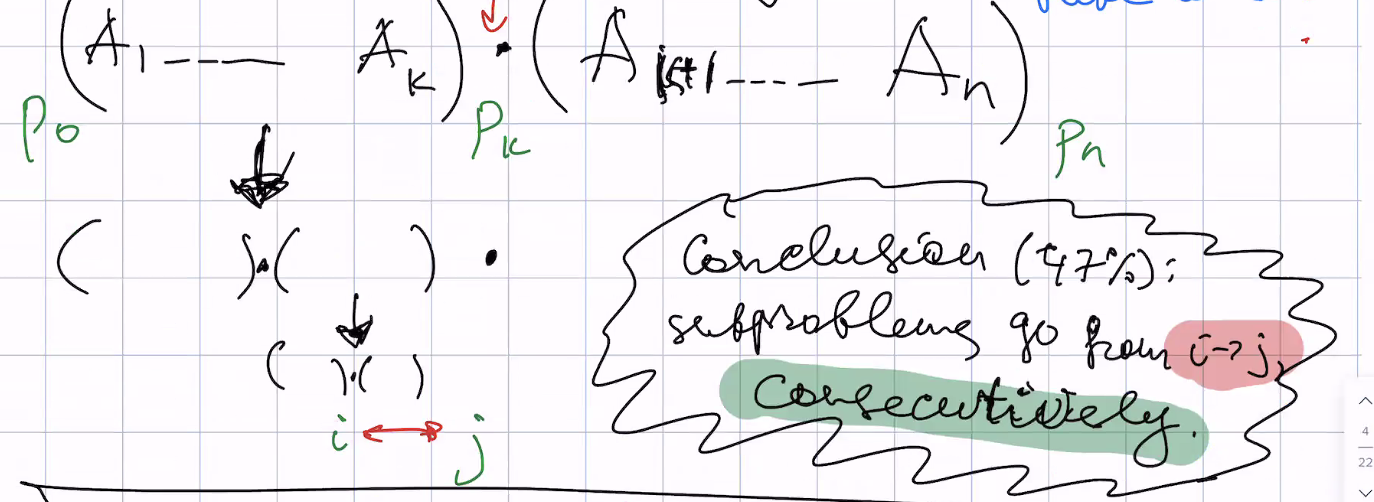 (A₁ ---- Aₖ) · (Aₖ₊₁ ---- Aₙ)
P₀ Pₖ Pₙ
( )·( ) ·
( )·( )
i ↔ j
Conclusion (47%):
subproblems go from i→j,
consecutively.
4
22